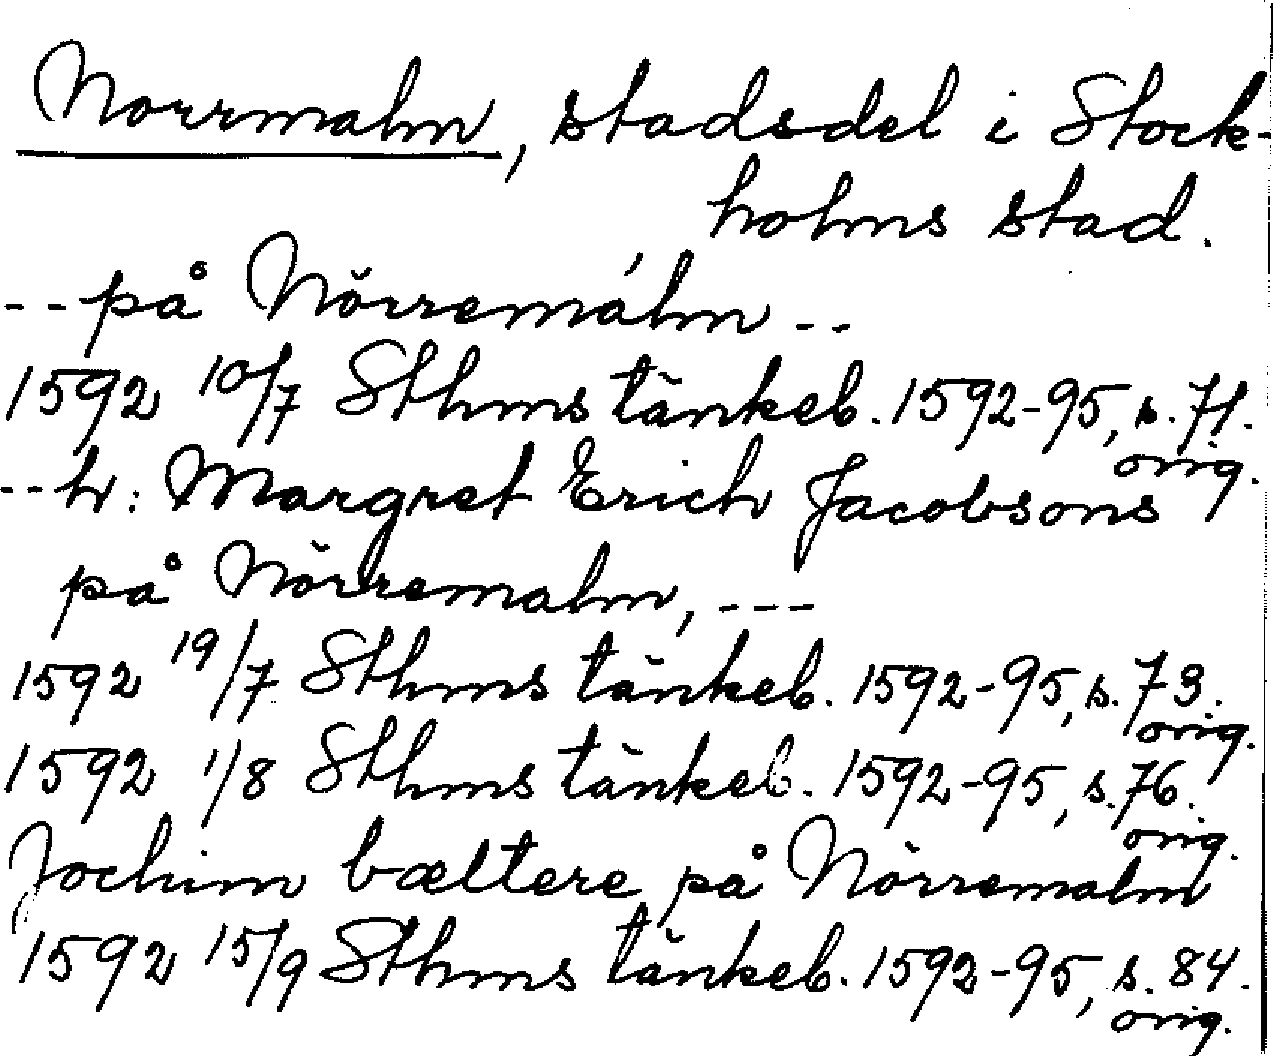 Norrmalm, stadsdel i Stock-
holms stad.
-- på Nörremalm --
1592 10/7 Sthms tänkeb. 1592-95, s. 71.
orig.
-- h: Margret Erich Jacobsons
på Nörremalm, ---
1592 19/7 Sthms tänkeb. 1592-95, s. 73.
orig.
1592 1/8 Sthms tänkeb. 1592-95, s. 76.
orig.
Jochim bæltere på Nörremalm
1592 15/9 Sthms tänkeb. 1592-95, s. 84.
orig.